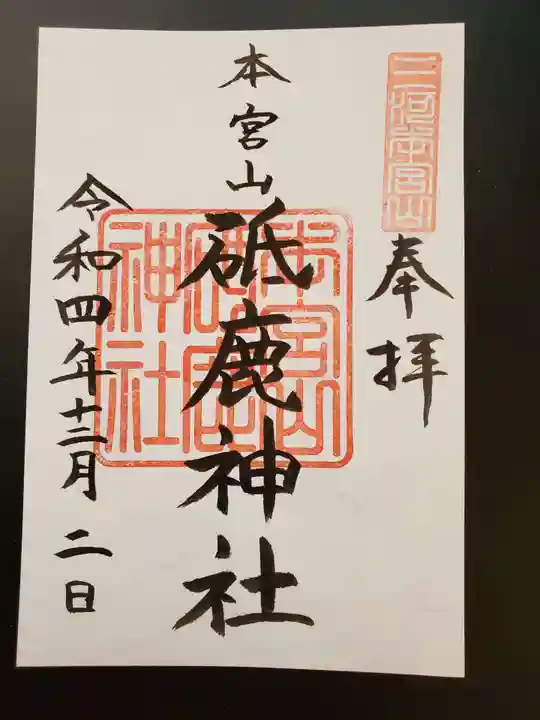 三河本宮山
奉拝
本宮山
砥鹿神社
本宮山
砥鹿
神社
令和四年十二月二日